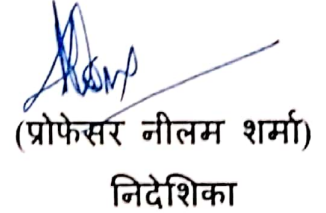 (प्रोफेसर नीलम शर्मा)
निदेशिका